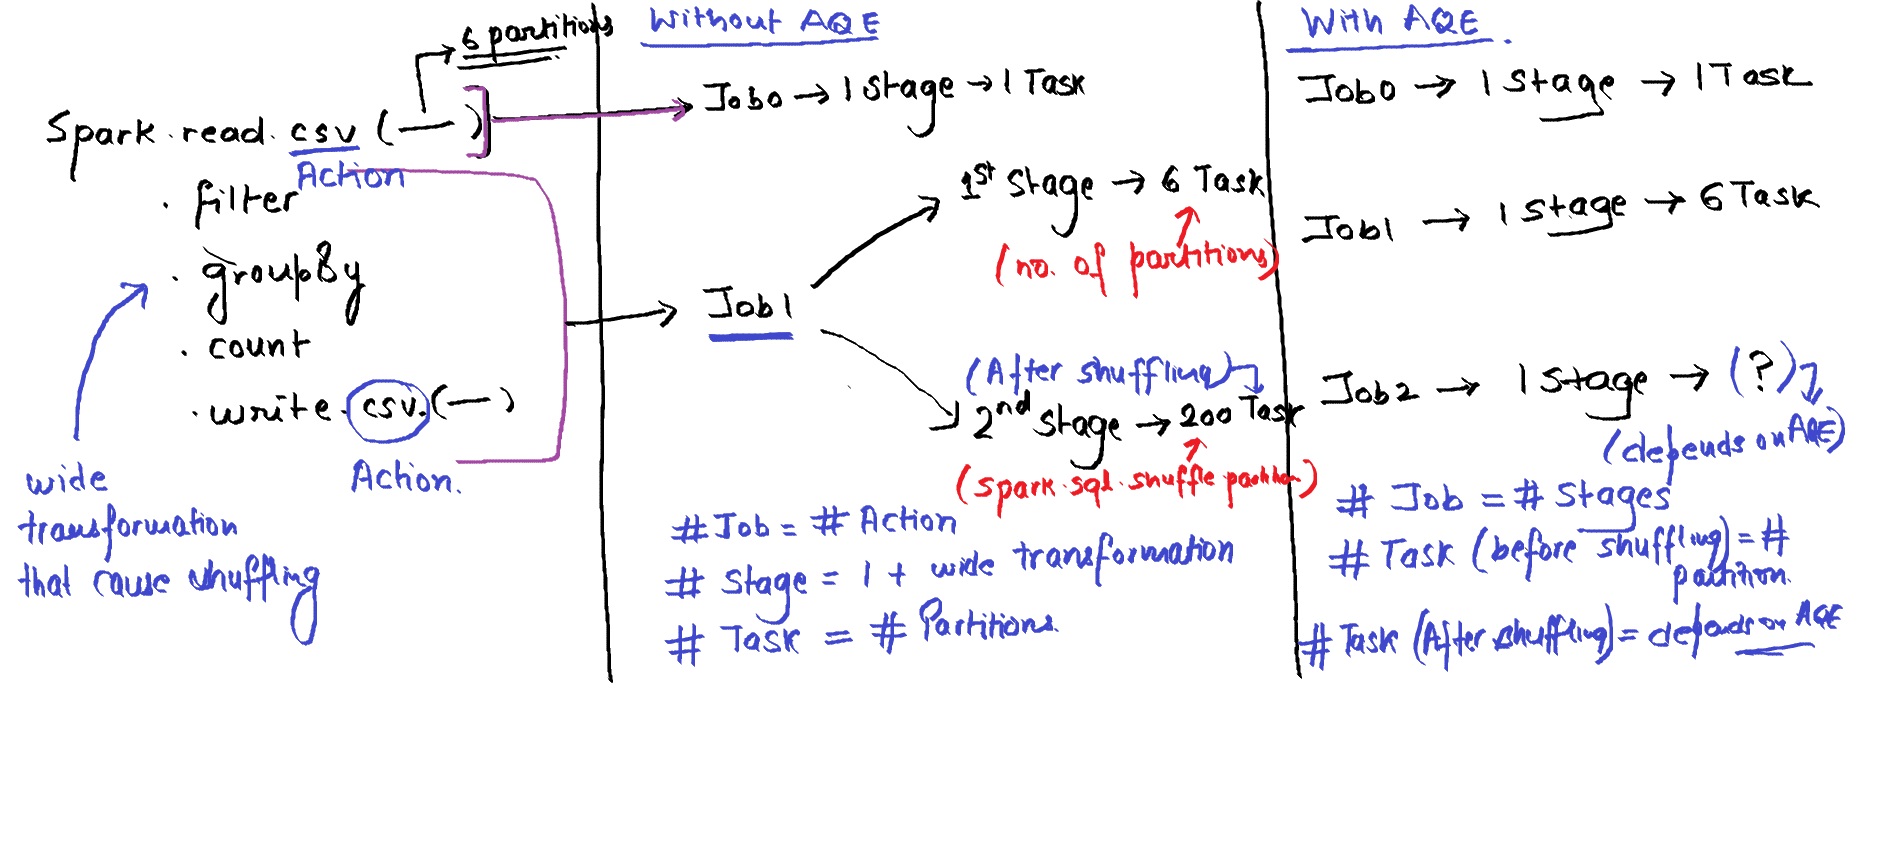 6 partitions
Spark.read.csv(—)
Action
.filter
.groupBy
.count
.write.csv.(—)
Action.
wide
transformation
that cause shuffling
Without AQE
Job0 → 1 Stage → 1 Task
1st Stage → 6 Task
(no. of partitions)
Job1
(After shuffling)
2nd Stage → 200 Task
(spark.sql.shuffle.partition)
# Job = # Action
# Stage = 1 + wide transformation
# Task = # Partitions.
With AQE.
Job0 → 1 Stage → 1 Task
Job1 → 1 Stage → 6 Task
Job2 → 1 Stage → (?)
(depends on AQE)
# Job = # Stages
# Task (before shuffling) = #
partition.
# Task (After shuffling) = depends on AQE